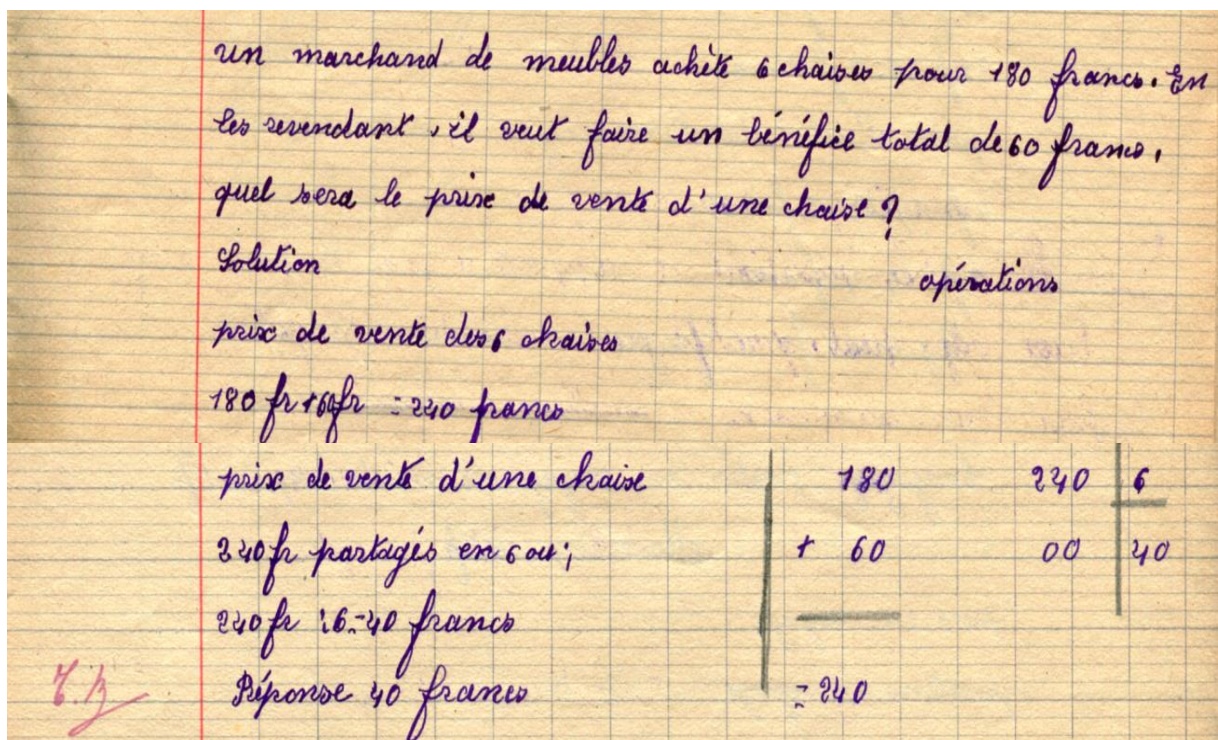 un marchand de meubles achète 6 chaises pour 180 francs. En
les revendant, il veut faire un bénéfice total de 60 francs,
quel sera le prix de vente d'une chaise ?
Solution
opérations
prix de vente des 6 chaises
180 fr + 60 fr = 240 francs
prix de vente d'une chaise
240 fr partagés en 6 ou ;
240 fr : 6 = 40 francs
Réponse 40 francs
180
+ 60
= 240
240 6
00 40
T.B